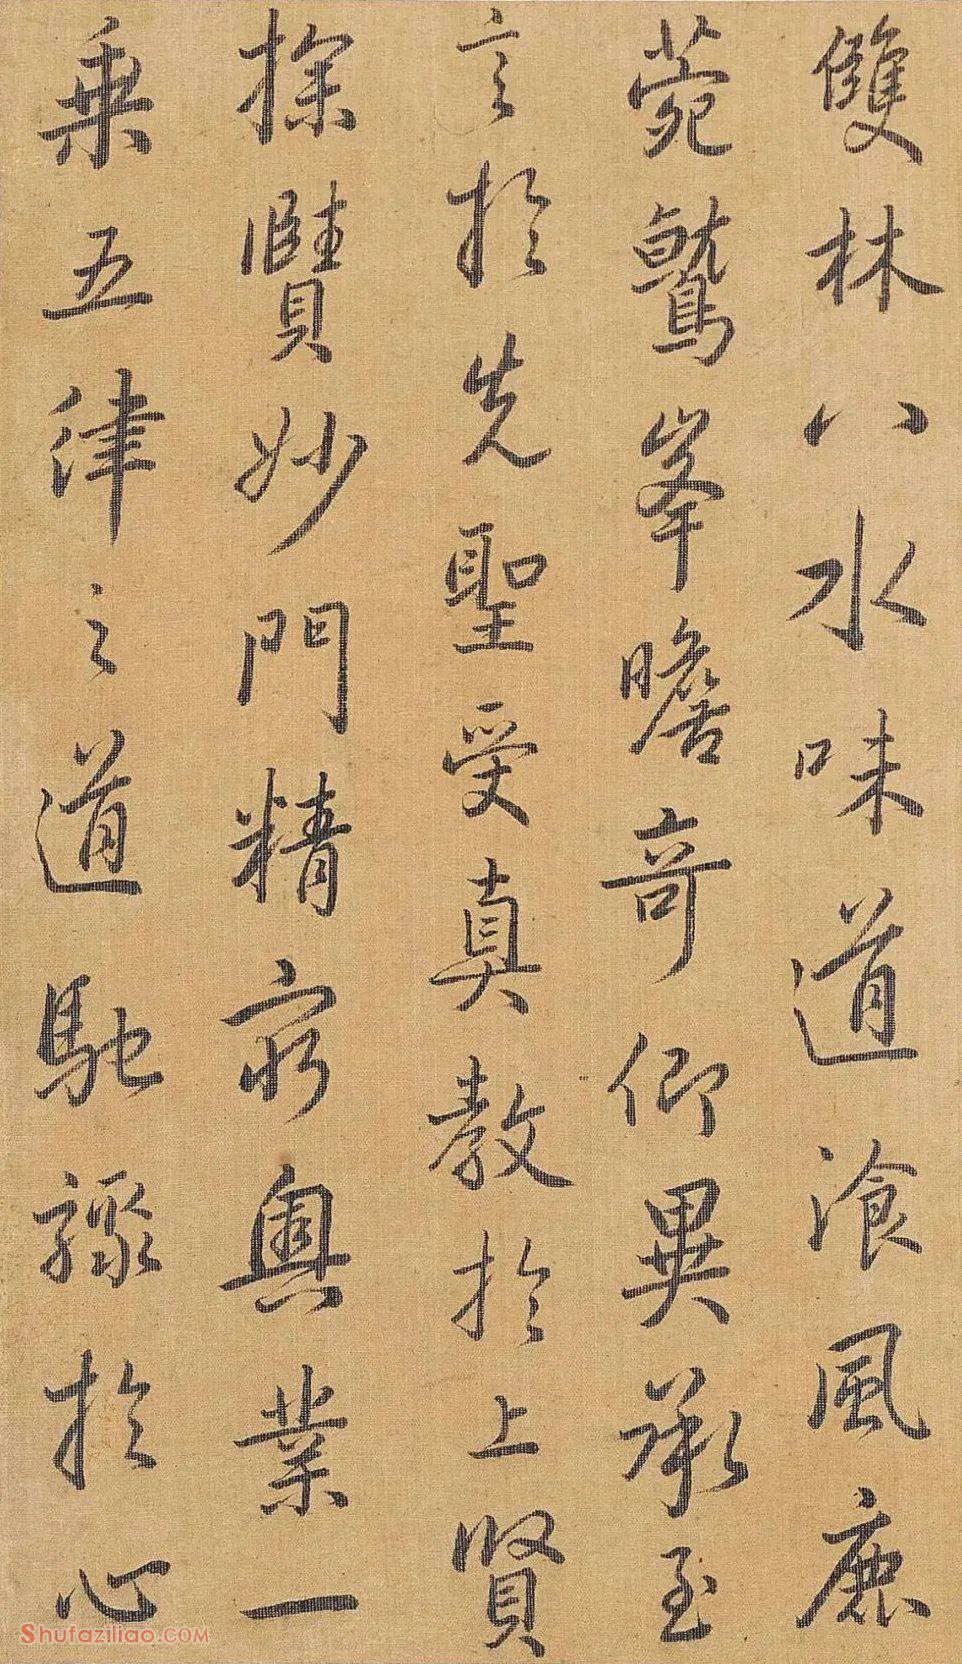 雙林八水味道湌風鹿
菀鷲峯瞻奇仰異承至
言於先聖受真教於上賢
探賾妙門精窮奧業一
乘五律之道馳驟於心
Shufaziliao.COM